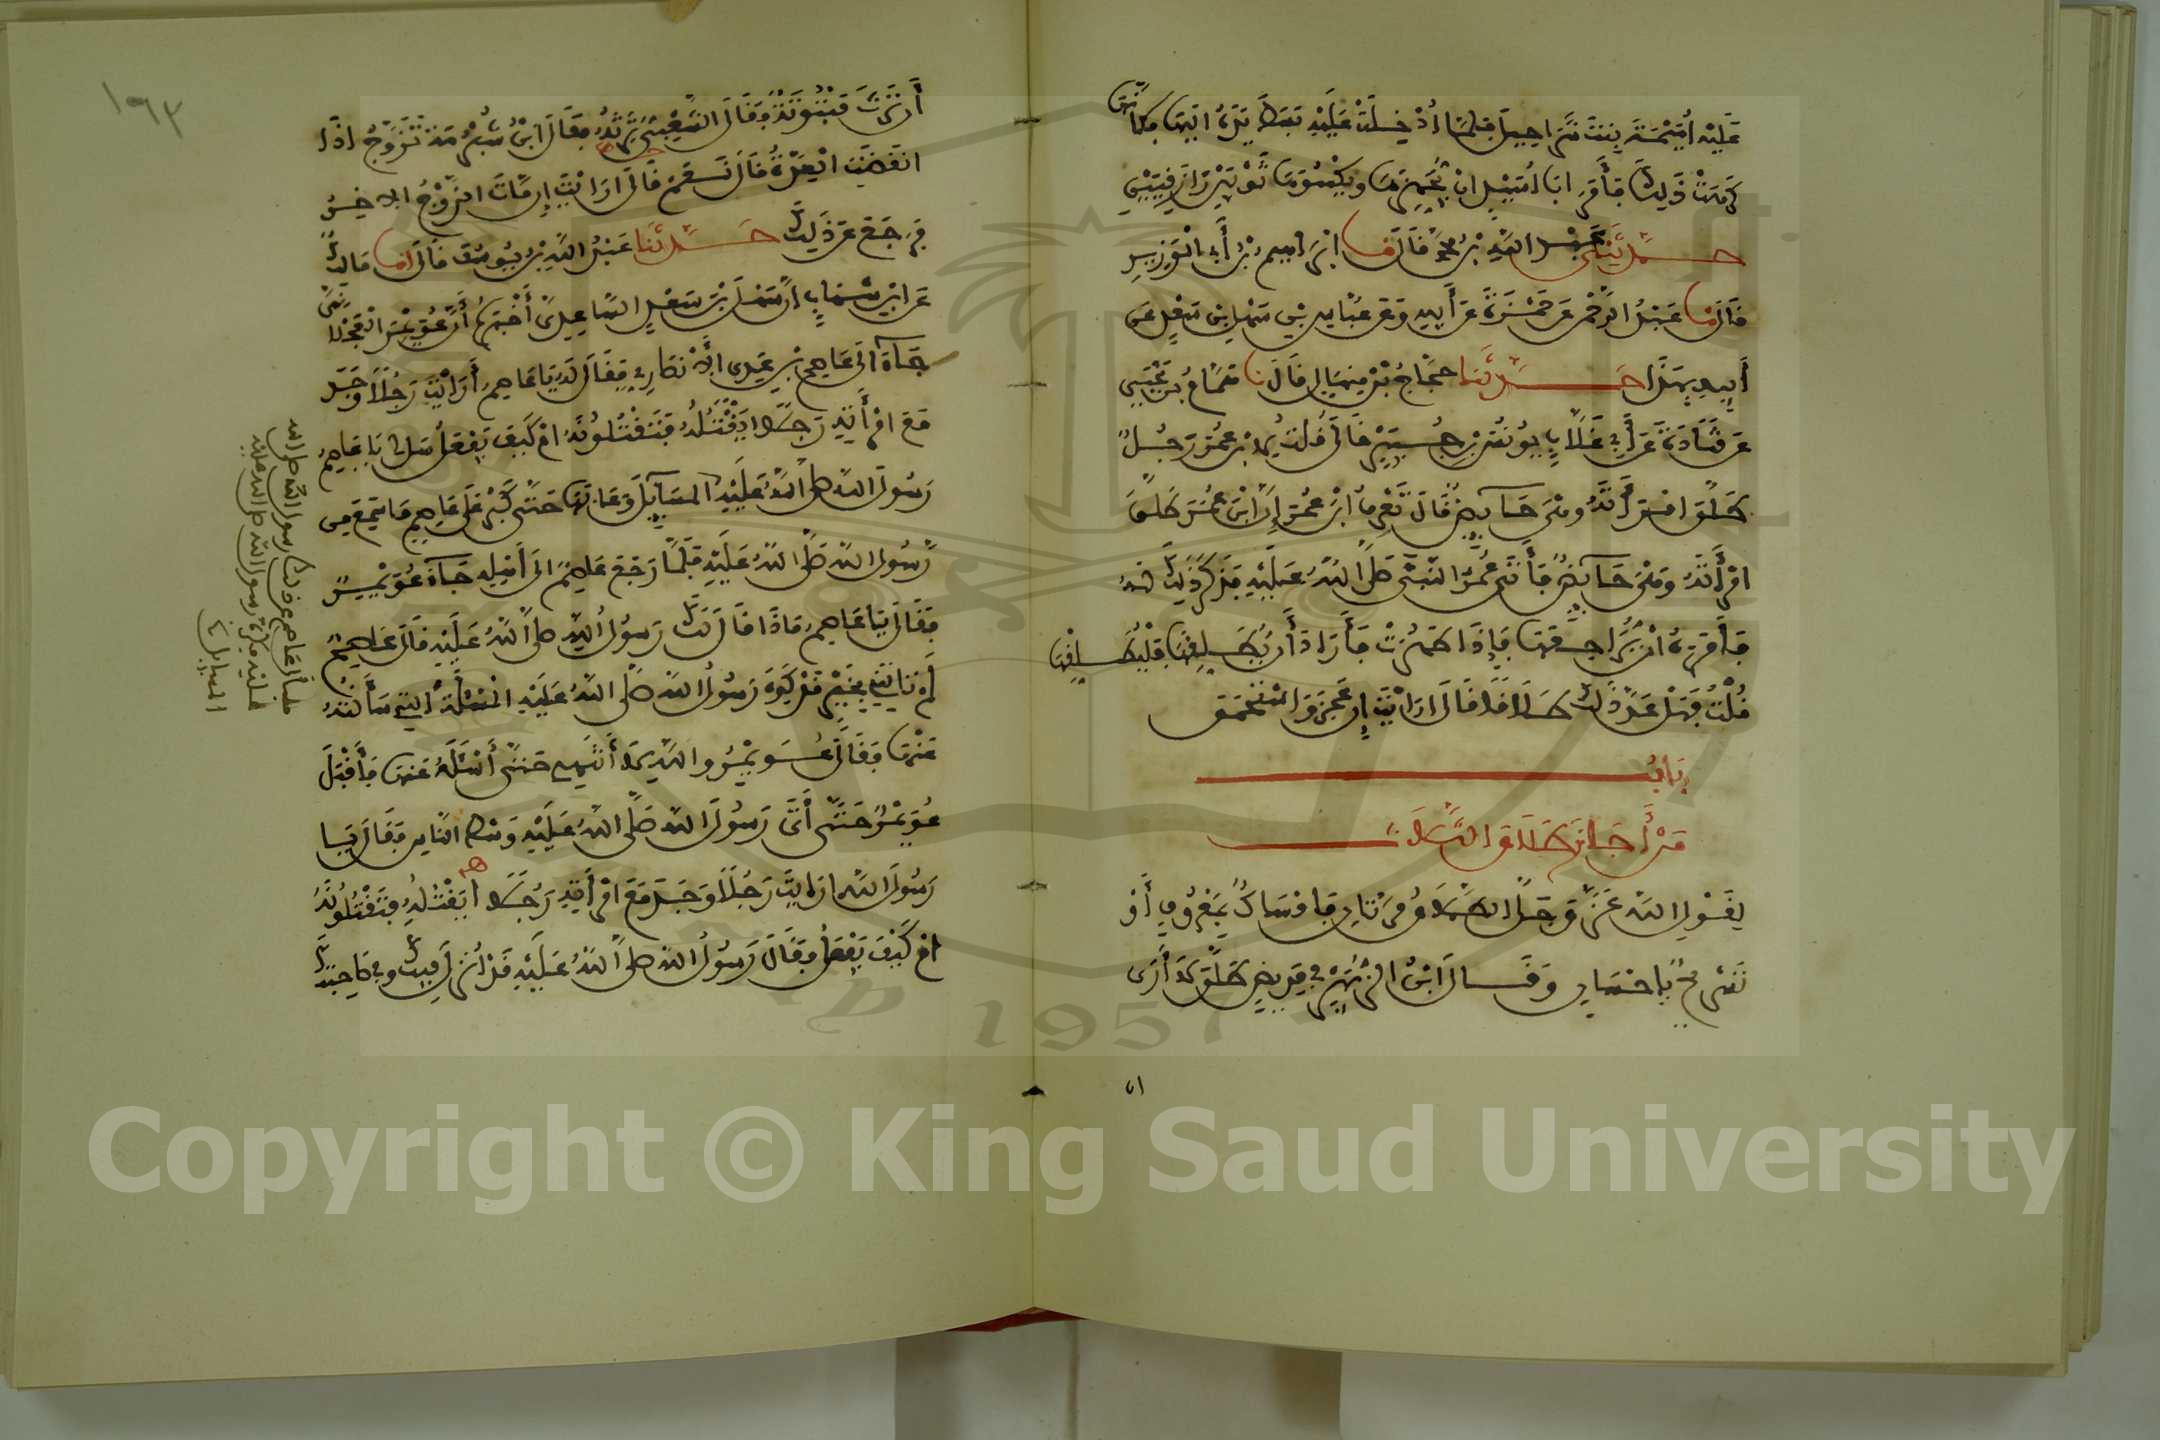 عَلَيْهِ أُمَيْمَةَ بِنْتَ شَرَاحِيلَ فَلَمَّا أُدْخِلَتْ عَلَيْهِ بَسَطَ يَدَهُ إِلَيْهَا فَكَأَنَّهَا
كَرِهَتْ ذَلِكَ فَأَمَرَ أَبَا أُسَيْدٍ أَنْ يُجَهِّزَهَا وَيَكْسُوَهَا ثَوْبَيْنِ رَازِقِيَّيْنِ
حَدَّثَنِي عَبْدُ اللهِ بْنُ مُحَمَّدٍ قَالَ نا إِبْرَاهِيمُ بْنُ أَبِي الْوَزِيرِ
قَالَ نا عَبْدُ الرَّحْمَنِ عَنْ حَمْزَةَ عَنْ أَبِيهِ وَعَنْ عَبَّاسِ بْنِ سَهْلِ بْنِ سَعْدٍ عَنْ
أَبِيهِ بِهَذَا حَدَّثَنَا حَجَّاجُ بْنُ مِنْهَالٍ قَالَ نا هَمَّامُ بْنُ يَحْيَى
عَنْ قَتَادَةَ عَنْ أَبِي غَلَّابٍ يُونُسَ بْنِ جُبَيْرٍ قَالَ قُلْتُ لِابْنِ عُمَرَ رَجُلٌ
طَلَّقَ امْرَأَتَهُ وَهْيَ حَائِضٌ قَالَ تَعْرِفُ ابْنَ عُمَرَ إِنَّ ابْنَ عُمَرَ طَلَّقَ
امْرَأَتَهُ وَهْيَ حَائِضٌ فَأَتَى عُمَرُ النَّبِيَّ صَلَّى اللهُ عَلَيْهِ فَذَكَرَ ذَلِكَ لَهُ
فَأَمَرَهُ أَنْ يُرَاجِعَهَا فَإِذَا طَهُرَتْ فَأَرَادَ أَنْ يُطَلِّقَهَا فَلْيُطَلِّقْهَا
قُلْتُ فَهَلْ عَدَّ ذَلِكَ طَلَاقًا قَالَ أَرَأَيْتَ إِنْ عَجَزَ وَاسْتَحْمَقَ
بَابُ
مَنْ أَجَازَ طَلَاقَ الثَّلَاثِ
لِقَوْلِ اللهِ عَزَّ وَجَلَّ الطَّلَاقُ مَرَّتَانِ فَإِمْسَاكٌ بِمَعْرُوفٍ أَوْ
تَسْرِيحٌ بِإِحْسَانٍ وَقَالَ ابْنُ الزُّبَيْرِ فِي مَرِيضٍ طَلَّقَ لَا أَرَى
٥١
١٩٣
أَنْ تَرِثَ مَبْتُوتَةٌ وَقَالَ الشَّعْبِيُّ تَرِثُهُ وَقَالَ ابْنُ شُبْرُمَةَ تَزَوَّجُ إِذَا
انْقَضَتِ الْعِدَّةُ قَالَ نَعَمْ قَالَ أَرَأَيْتَ إِنْ مَاتَ الزَّوْجُ الْآخِرُ
فَرَجَعَ عَنْ ذَلِكَ حَدَّثَنَا عَبْدُ اللهِ بْنُ يُوسُفَ قَالَ أنا مَالِكٌ
عَنِ ابْنِ شِهَابٍ أَنَّ سَهْلَ بْنَ سَعْدٍ السَّاعِدِيَّ أَخْبَرَهُ أَنَّ عُوَيْمِرَ الْعَجْلَانِيَّ
جَاءَ إِلَى عَاصِمِ بْنِ عَدِيٍّ الْأَنْصَارِيِّ فَقَالَ لَهُ يَا عَاصِمُ أَرَأَيْتَ رَجُلًا وَجَدَ
مَعَ امْرَأَتِهِ رَجُلًا أَيَقْتُلُهُ فَتَقْتُلُونَهُ أَمْ كَيْفَ يَفْعَلُ سَلْ لِي يَا عَاصِمُ
رَسُولَ اللهِ صَلَّى اللهُ عَلَيْهِ الْمَسَائِلَ وَعَابَهَا حَتَّى كَبُرَ عَلَى عَاصِمٍ مَا سَمِعَ مِنْ
رَسُولِ اللهِ صَلَّى اللهُ عَلَيْهِ فَلَمَّا رَجَعَ عَاصِمٌ إِلَى أَهْلِهِ جَاءَهُ عُوَيْمِرٌ
فَقَالَ يَا عَاصِمُ مَاذَا قَالَ لَكَ رَسُولُ اللهِ صَلَّى اللهُ عَلَيْهِ قَالَ عَاصِمٌ
لَمْ تَأْتِنِي بِخَيْرٍ قَدْ كَرِهَ رَسُولُ اللهِ صَلَّى اللهُ عَلَيْهِ الْمَسْأَلَةَ الَّتِي سَأَلْتُهُ
عَنْهَا فَقَالَ عُوَيْمِرٌ وَاللهِ لَا أَنْتَهِي حَتَّى أَسْأَلَهُ عَنْهَا فَأَقْبَلَ
عُوَيْمِرٌ حَتَّى أَتَى رَسُولَ اللهِ صَلَّى اللهُ عَلَيْهِ وَسْطَ النَّاسِ فَقَالَ يَا
رَسُولَ اللهِ أَرَأَيْتَ رَجُلًا وَجَدَ مَعَ امْرَأَتِهِ رَجُلًا أَيَقْتُلُهُ فَتَقْتُلُونَهُ
أَمْ كَيْفَ يَفْعَلُ فَقَالَ رَسُولُ اللهِ صَلَّى اللهُ عَلَيْهِ قَدْ أُنْزِلَ فِيكَ وَفِي صَاحِبَتِكَ
فسأل عاصم عن ذلك رسول الله صلى الله
عليه فكره رسول الله صلى الله عليه
المسايل
Copyright © King Saud University
1957